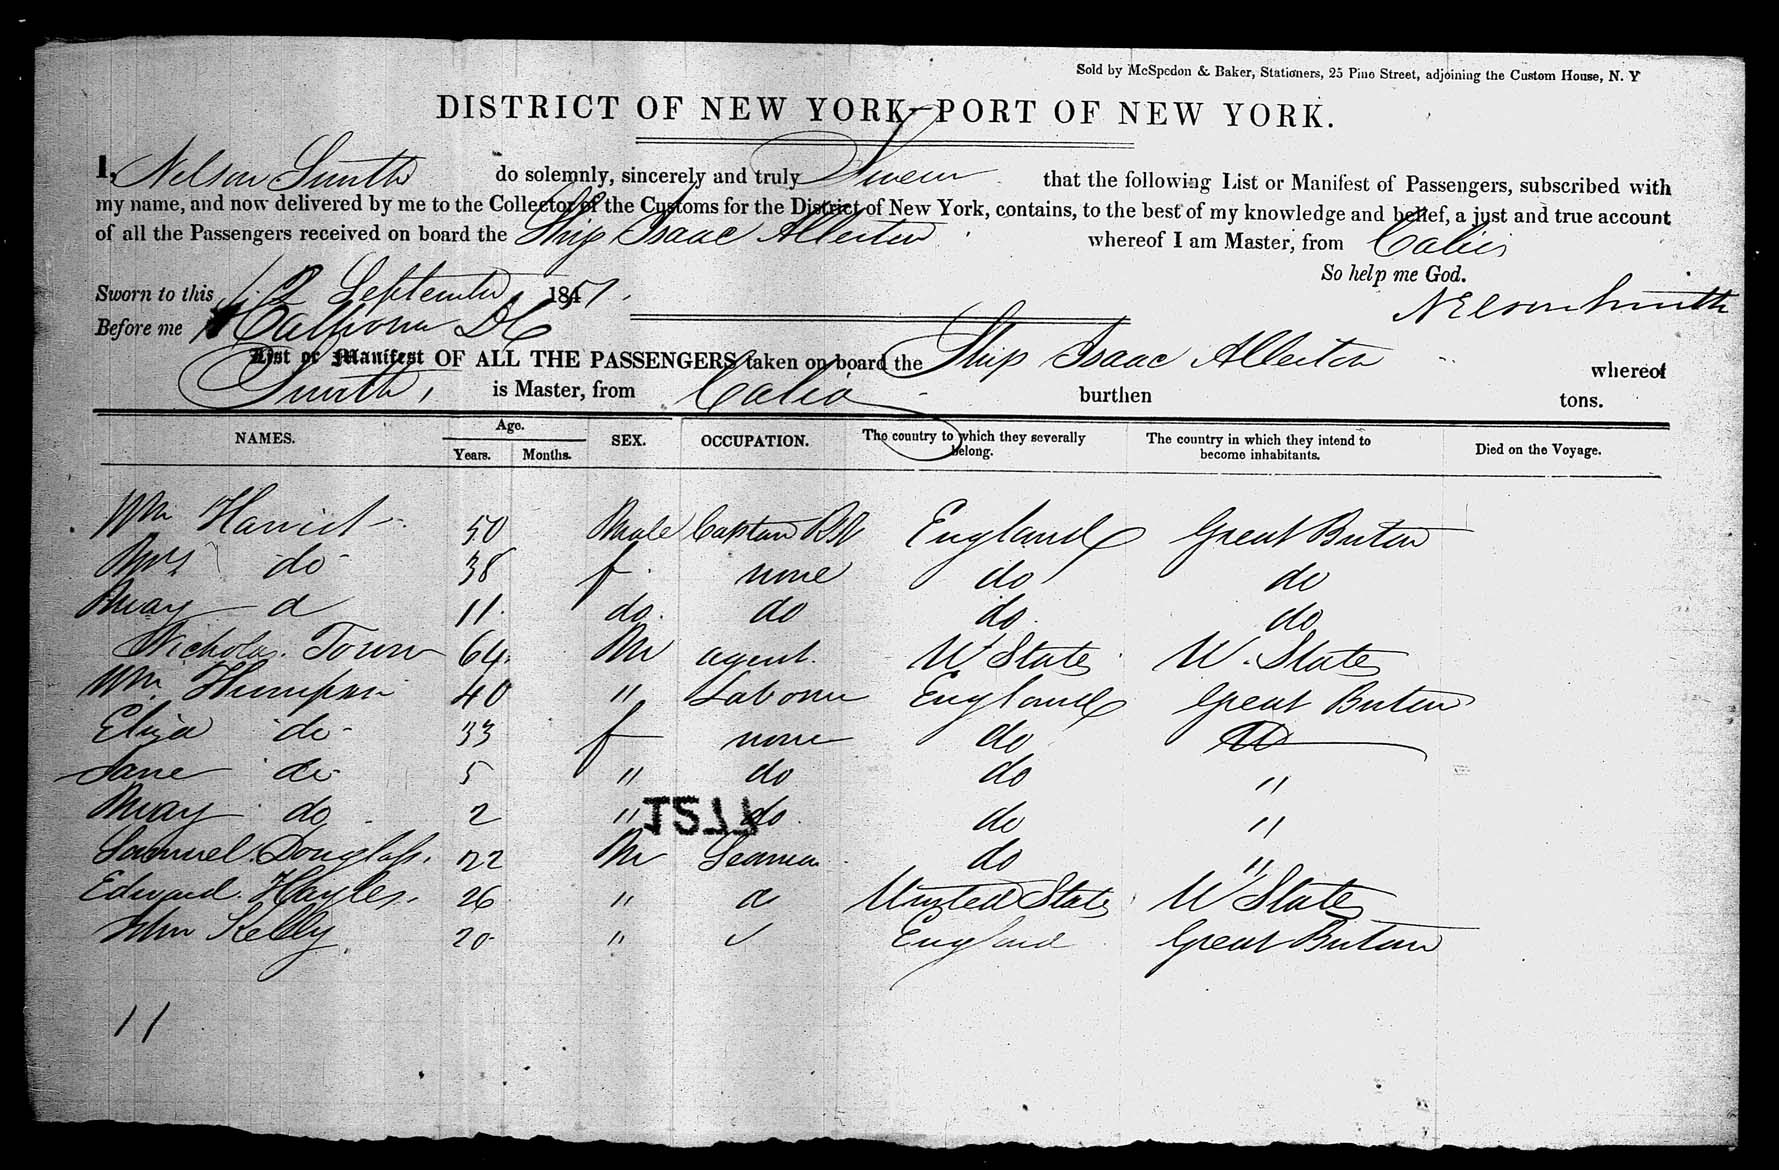 Sold by McSpedon & Baker, Stationers, 25 Pine Street, adjoining the Custom House, N. Y
DISTRICT OF NEW YORK—PORT OF NEW YORK.
I, Nelson Smith do solemnly, sincerely and truly Swear that the following List or Manifest of Passengers, subscribed with
my name, and now delivered by me to the Collector of the Customs for the District of New York, contains, to the best of my knowledge and belief, a just and true account
of all the Passengers received on board the Ship Isaac Allerton whereof I am Master, from
So help me God.
Sworn to this 12 September 1851.
Nelson Smith
Before me
List or Manifest OF ALL THE PASSENGERS taken on board the Ship Isaac Allerton whereof
Smith, is Master, from burthen tons.
NAMES. Age. Years. Months. SEX. OCCUPATION. The country to which they severally belong. The country in which they intend to become inhabitants. Died on the Voyage.
Wm 50 Male Captain England Great Britain
Mrs do 38 f none do do
Mary d 11 do do do do
Nicholas Town 64 M agent U States U. States
Wm 40 " Laborer England Great Britain
Eliza do 33 f none do
Jane do 5 " do do "
Mary do 2 " do do "
1577
Samuel Douglass. 22 M Seaman do "
Edward Hayles. 26 " d United States U States
John Kelly 20 " England Great Britain
11